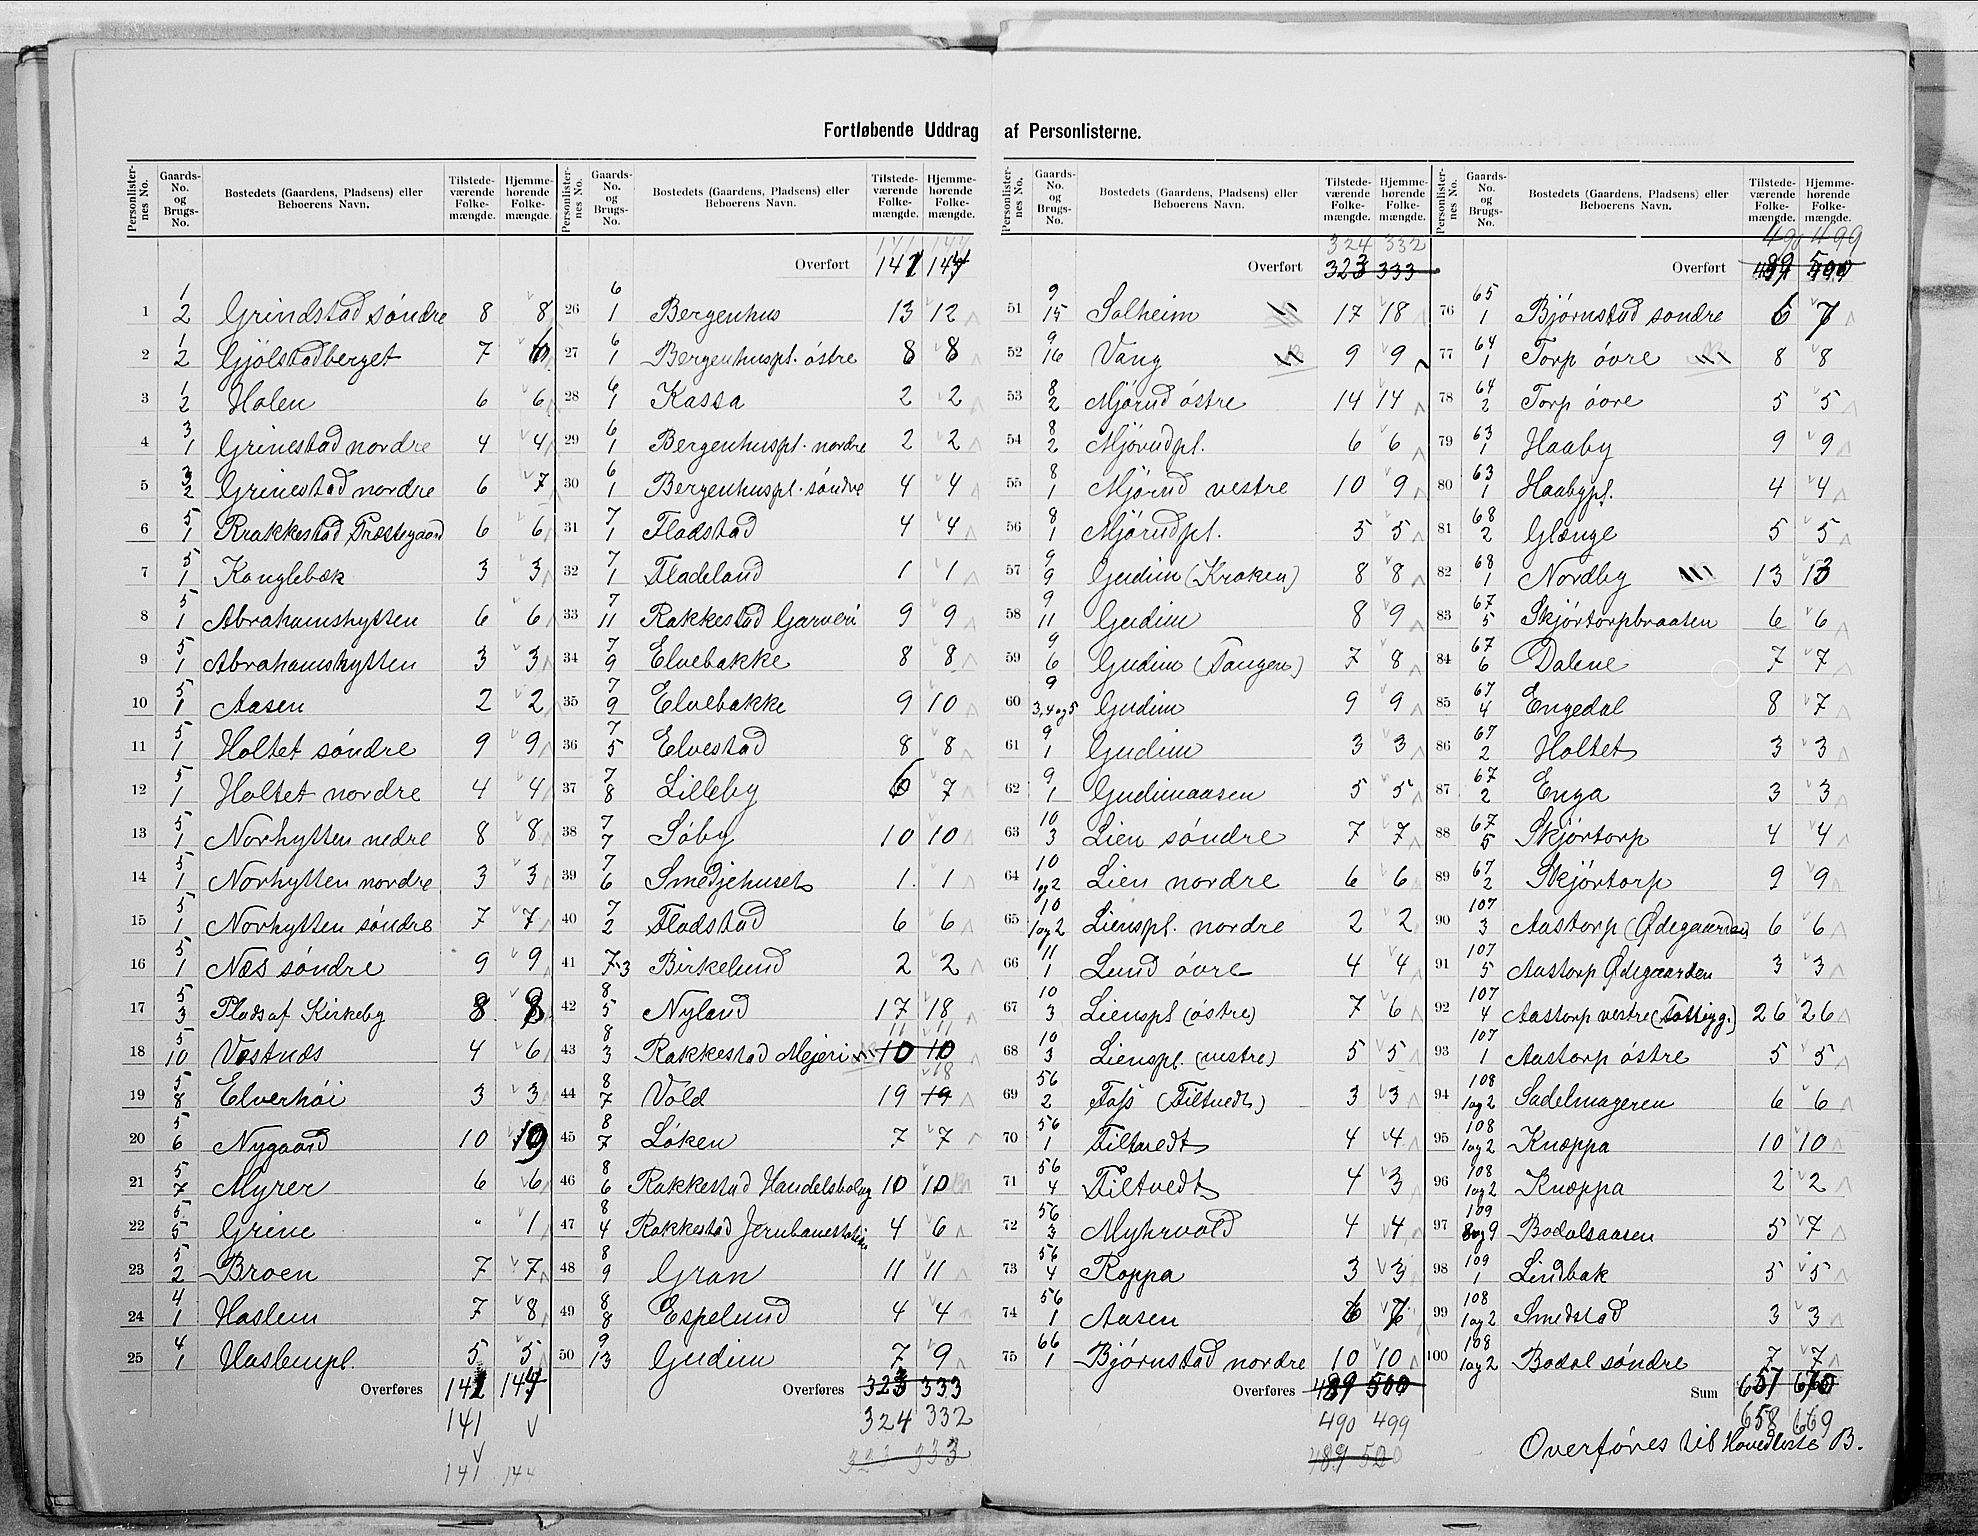 Fortløbende Uddrag af Personlisterne.
Personlister-nes No. | Gaards-No. og Brugs-No. | Bostedets (Gaardens, Pladsens) eller Beboerens Navn. | Tilstede-værende Folke-mængde. | Hjemme-hørende Folke-mængde.
1 | 1/2 | Grindstad søndre | 8 | 8
2 | 1/2 | Gjølstadberget | 7 | 6
3 | 1/2 | Holen | 6 | 6
4 | 3/1 | Grinestad nordre | 4 | 4
5 | 3/2 | Grinestad nordre | 6 | 7
6 | 5/1 | Rrakkestad Præstegaard | 6 | 6
7 | 5/1 | Kanglebæk | 3 | 3
8 | 5/1 | Abrahamshytten | 6 | 6
9 | 5/1 | Abrahamshytten | 3 | 3
10 | 5/1 | Aasen | 2 | 2
11 | 5/1 | Holtet søndre | 9 | 9
12 | 5/1 | Holtet nordre | 4 | 4
13 | 5/1 | Norhytten nedre | 8 | 8
14 | 5/1 | Norhytten nordre | 3 | 3
15 | 5/1 | Norhytten søndre | 7 | 7
16 | 5/1 | Næs søndre | 9 | 9
17 | 5/3 | Plads af Kirkeby | 8 | 8
18 | 5/10 | Vestnæs | 4 | 6
19 | 5/8 | Elverhøi | 3 | 3
20 | 5/6 | Nygaard | 10 | 9
21 | 5/7 | Myrer | 6 | 6
22 | 5/5 | Grine | " | 1
23 | 5/2 | Broen | 7 | 7
24 | 4/1 | Haslem | 7 | 8
25 | 4/1 | Haslempl. | 5 | 5
Overføres 141 144
141 V
V
141 144
Personlister-nes No. | Gaards-No. og Brugs-No. | Bostedets (Gaardens, Pladsens) eller Beboerens Navn. | Tilstede-værende Folke-mængde. | Hjemme-hørende Folke-mængde.
141 144
Overført 141 144
26 | 6/1 | Bergenhus | 13 | 12
27 | 6/1 | Bergenhuspl. østre | 8 | 8
28 | 6/1 | Kassa | 2 | 2
29 | 6/1 | Bergenhuspl. nordre | 2 | 2
30 | 6/1 | Bergenhuspl. søndre | 4 | 4
31 | 7/1 | Fladstad | 4 | 4
32 | 7/1 | Fladeland | 1 | 1
33 | 7/11 | Rakkestad Garveri | 9 | 9
34 | 7/9 | Elvebakke | 8 | 8
35 | 7/9 | Elvebakke | 9 | 10
36 | 7/5 | Elvestad | 8 | 8
37 | 7/8 | Lilleby | 6 | 7
38 | 7/7 | Søby | 10 | 10
39 | 7/6 | Smedjehuset | 1 | 1
40 | 7/2 | Fladstad | 6 | 6
41 | 7-3 | Birkelund | 2 | 2
42 | 8/5 | Nyland | 17 | 18
11 11
43 | 8/3 | Rakkestad Mejeri | 10 | 10
18
44 | 8/7 | Vold | 19 | 19
45 | 8/7 | Løken | 7 | 7
46 | 8/6 | Rakkestad Handelsbolag | 10 | 10
47 | 8/4 | Rakkestad Jernbanestation | 4 | 6
48 | 8/9 | Gran | 11 | 11
49 | 8/8 | Espelund | 4 | 4
50 | 9/13 | Gudim | 7 | 9
Overføres 323 333
324 332
323 333
Personlister-nes No. | Gaards-No. og Brugs-No. | Bostedets (Gaardens, Pladsens) eller Beboerens Navn. | Tilstede-værende Folke-mængde. | Hjemme-hørende Folke-mængde.
324 332
Overført 323 333
51 | 9/15 | Solheim | 17 | 18
52 | 9/16 | Vang | 9 | 9
53 | 8/2 | Mjørud østre | 14 | 14
54 | 8/2 | Mjørudpl. | 6 | 6
55 | 8/1 | Mjørud vestre | 10 | 9
56 | 8/1 | Mjørudpl. | 5 | 5
57 | 9/9 | Gudim (Kroken) | 8 | 8
58 | 9/11 | Gudim | 8 | 9
59 | 9/6 | Gudim (Tangen) | 7 | 8
60 | 9/3,4 og 5 | Gudim | 9 | 9
61 | 9/1 | Gudim | 3 | 3
62 | 9/1 | Gudimaasen | 5 | 5
63 | 10/3 | Lien søndre | 7 | 7
64 | 10/1 og 2 | Lien nordre | 6 | 6
65 | 10/1 og 2 | Lienspl. nordre | 2 | 2
66 | 11/1 | Lund øvre | 4 | 4
67 | 10/3 | Lienspl (østre) | 7 | 6
68 | 10/3 | Lienspl. (vestre) | 5 | 5
69 | 56/2 | Foss (Tiltvedt) | 3 | 3
70 | 56/1 | Tiltvedt | 4 | 4
71 | 56/4 | Tiltvedt | 4 | 3
72 | 56/3 | Myhrvold | 4 | 4
73 | 56/4 | Roppa | 3 | 3
74 | 56/1 | Aasen | 6 | 7
75 | 66/1 | Bjørnstad nordre | 10 | 10
Overføres 489 500
490 499
489 500
Personlister-nes No. | Gaards-No. og Brugs-No. | Bostedets (Gaardens, Pladsens) eller Beboerens Navn. | Tilstede-værende Folke-mængde. | Hjemme-hørende Folke-mængde.
490 499
Overført 489 500
76 | 65/1 | Bjørnstad søndre | 6 | 7
77 | 64/1 | Torp øvre | 8 | 8
78 | 64/2 | Torp øvre | 5 | 5
79 | 63/1 | Haaby | 9 | 9
80 | 63/1 | Haabypl. | 4 | 4
81 | 68/2 | Glænge | 5 | 5
82 | 68/1 | Nordby | 13 | 13
83 | 67/5 | Skjørtorpbraaten | 6 | 6
84 | 67/6 | Dalene | 7 | 7
85 | 67/4 | Engedal | 8 | 7
86 | 67/2 | Holtet | 3 | 3
87 | 67/2 | Enga | 3 | 3
88 | 67/5 | Skjørtorp | 4 | 4
89 | 67/2 | Skjørtorp | 9 | 9
90 | 107/3 | Aastorp (Ødegaarden) | 6 | 6
91 | 107/5 | Aastorp Ødegaarden | 3 | 3
92 | 107/4 | Aastorp vestre (Fattigg.) | 26 | 26
93 | 107/1 | Aastorp østre | 5 | 5
94 | 108/1 og 2 | Sadelmageren | 6 | 6
95 | 108/1 og 2 | Knæppa | 10 | 10
96 | 108/1 og 2 | Knæppa | 2 | 2
97 | 109/8 og 9 | Bodalsaasen | 5 | 7
98 | 109/1 | Lindbak | 5 | 5
99 | 108/1 og 2 | Smedstad | 3 | 3
100 | 108/1 og 2 | Bodal søndre | 7 | 7
Sum 657 670
658 669
Overføres til Hovedliste B.